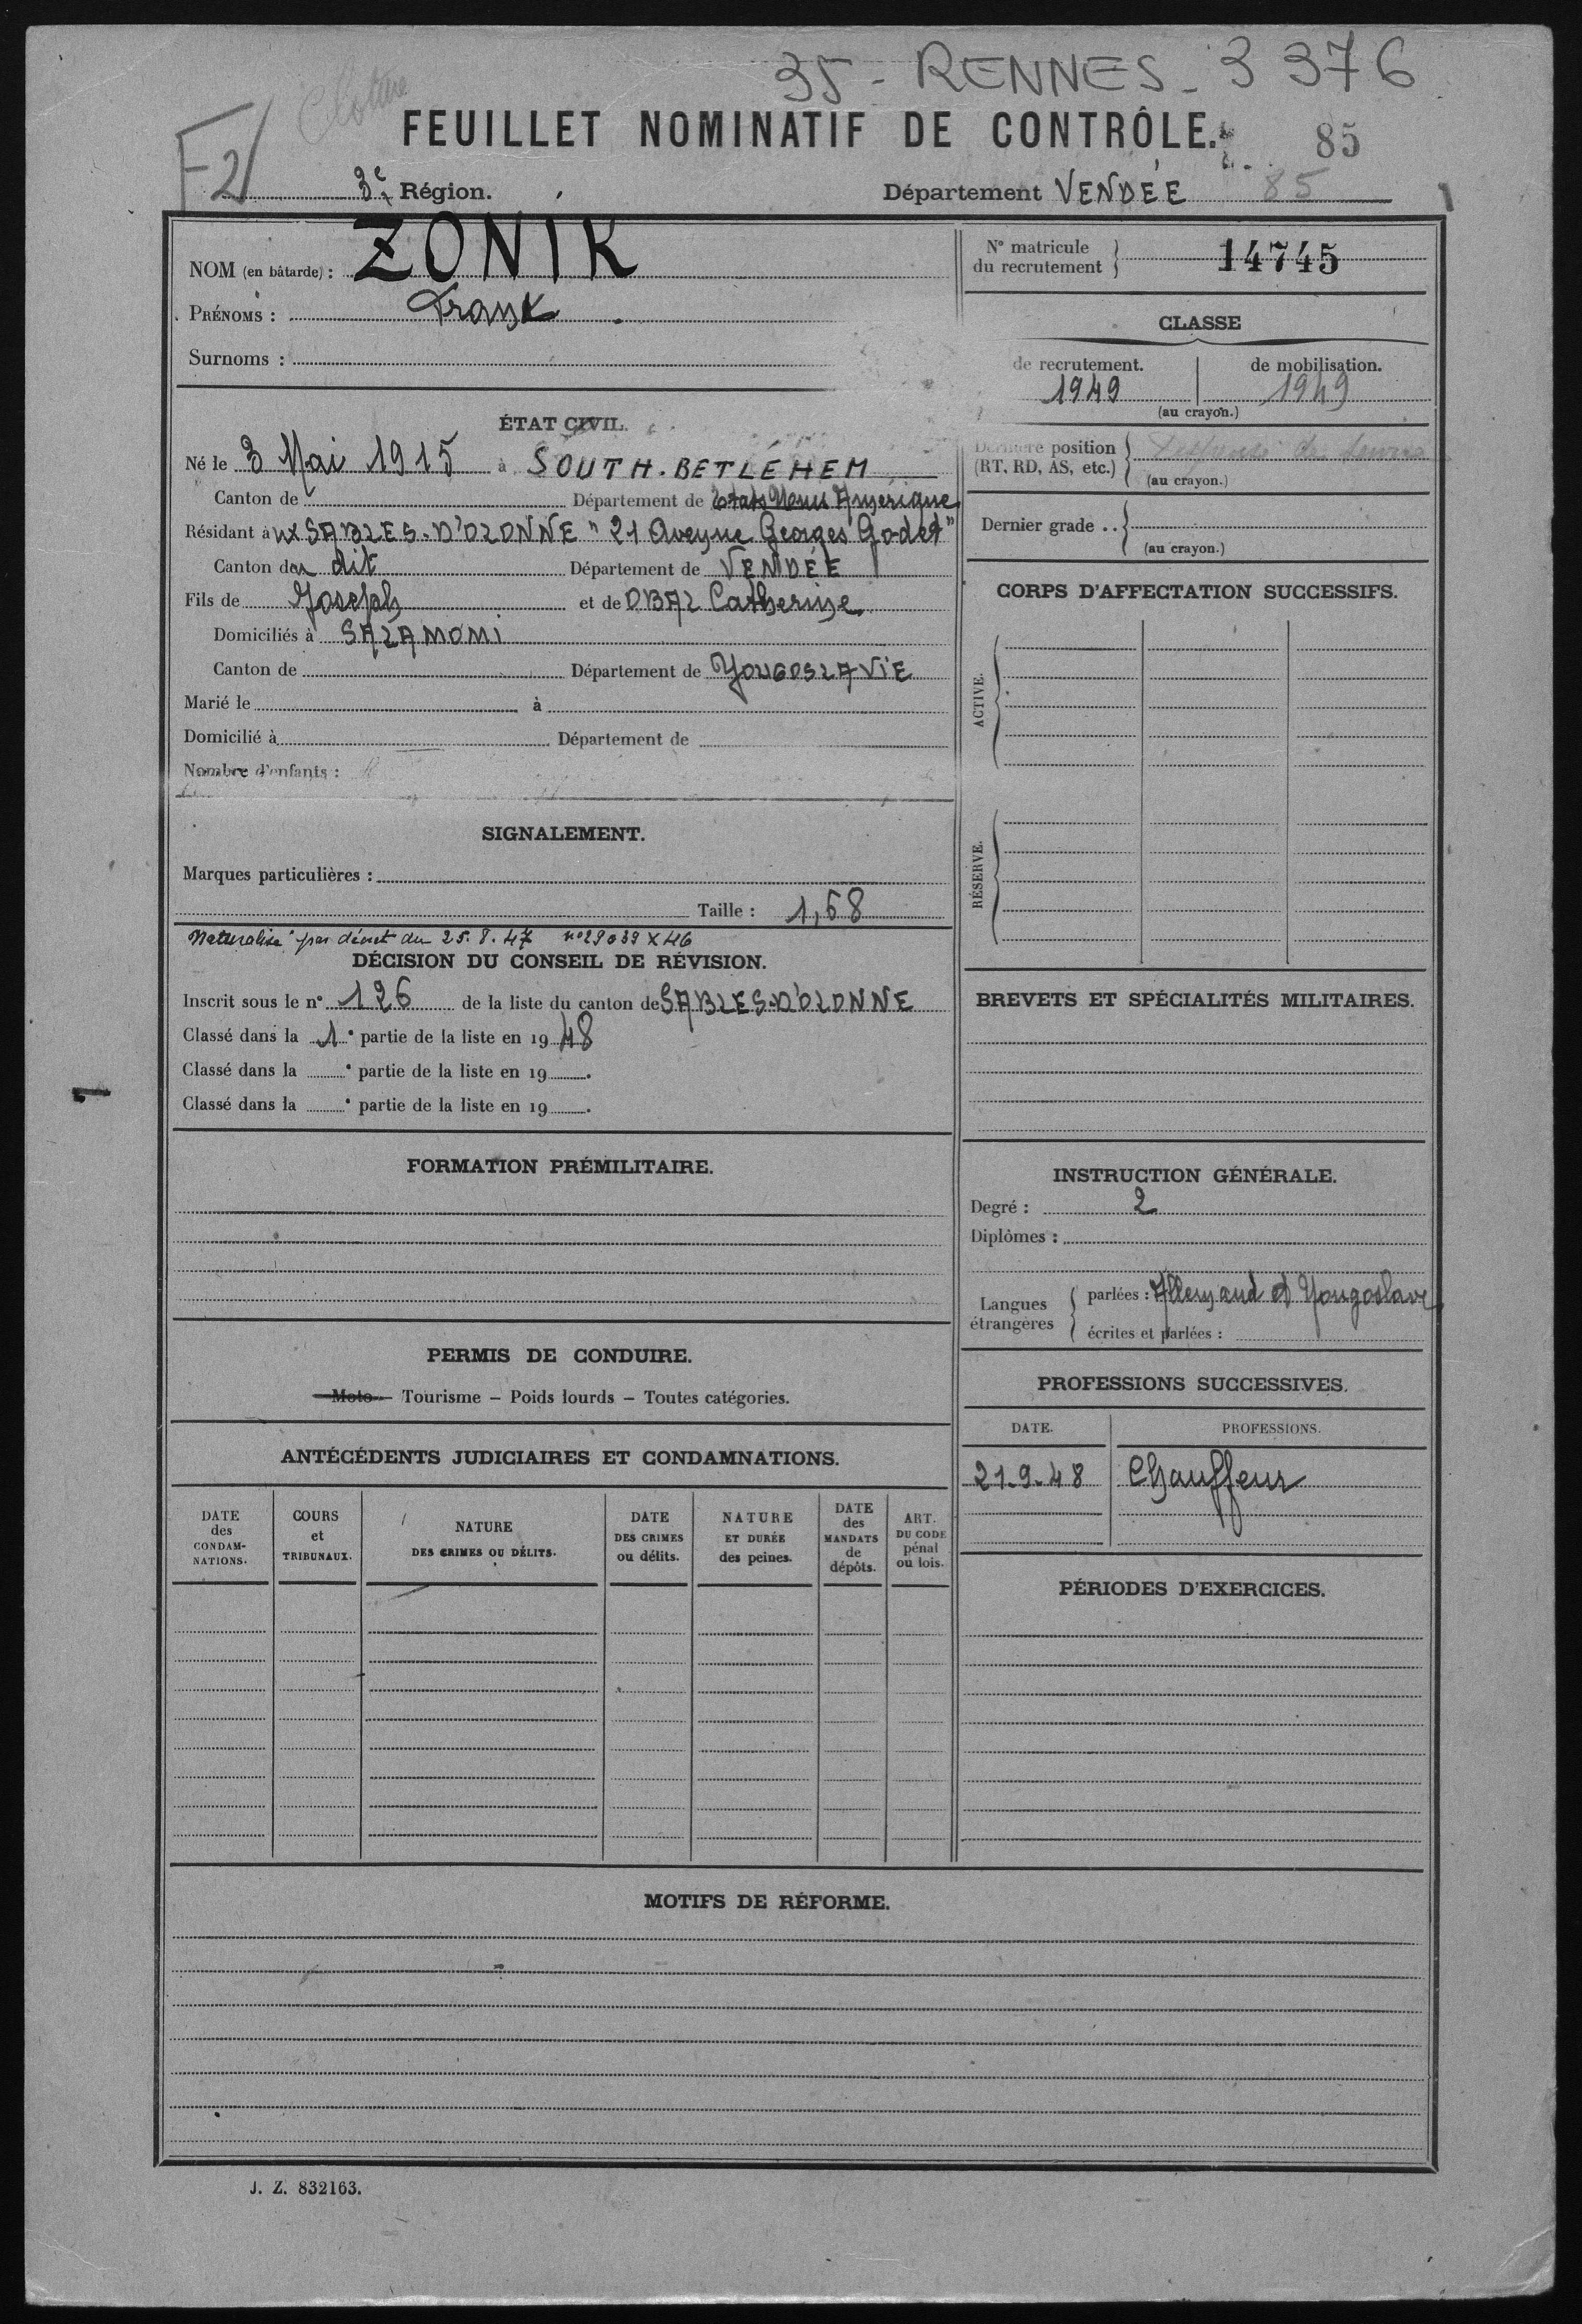 35 - RENNES - 3 376
Cloture
FEUILLET NOMINATIF DE CONTRÔLE.
85
F2/
3e Région.
Département VENDÉE 85
NOM (en bâtarde) : ZONIK
PRÉNOMS : Frank
Surnoms :
N° matricule du recrutement } 14745
CLASSE
de recrutement. de mobilisation.
1949 1949
(au crayon.)
Dernière position (RT, RD, AS, etc.) { de service
(au crayon.)
Dernier grade .. {
(au crayon.)
ÉTAT CIVIL.
Né le 3 Mai 1915 à SOUTH-BETLÉHEM
Canton de Département de Etats Unis Amérique
Résidant à ux SABLES-D'OLONNE " 21 Avenue Georges Godet "
Canton du dit Département de VENDÉE
Fils de Joseph et de OBAL Catherine
Domiciliés à SALAMOMI
Canton de Département de YOUGOSLAVIE
Marié le à
Domicilié à Département de
Nombre d'enfants :
SIGNALEMENT.
Marques particulières :
Taille : 1,68
Naturalisé par décret du 25.8.47 n° 29039 X 46
DÉCISION DU CONSEIL DE RÉVISION.
Inscrit sous le n° 126 de la liste du canton de SABLES-D'OLONNE
Classé dans la 1e partie de la liste en 1948
Classé dans la e partie de la liste en 19 .
Classé dans la e partie de la liste en 19 .
FORMATION PRÉMILITAIRE.
PERMIS DE CONDUIRE.
Moto – Tourisme – Poids lourds – Toutes catégories.
ANTÉCÉDENTS JUDICIAIRES ET CONDAMNATIONS.
DATE des CONDAMNATIONS.
COURS et TRIBUNAUX.
NATURE DES CRIMES OU DÉLITS.
DATE DES CRIMES ou délits.
NATURE ET DURÉE des peines.
DATE des MANDATS de dépôts.
ART. DU CODE pénal ou lois.
CORPS D'AFFECTATION SUCCESSIFS.
ACTIVE.
RÉSERVE.
BREVETS ET SPÉCIALITÉS MILITAIRES.
INSTRUCTION GÉNÉRALE.
Degré : 2
Diplômes :
Langues étrangères { parlées : Allemand et Yougoslave
écrites et parlées :
PROFESSIONS SUCCESSIVES.
DATE. PROFESSIONS.
21-9-48 Chauffeur
PÉRIODES D'EXERCICES.
MOTIFS DE RÉFORME.
J. Z. 832163.